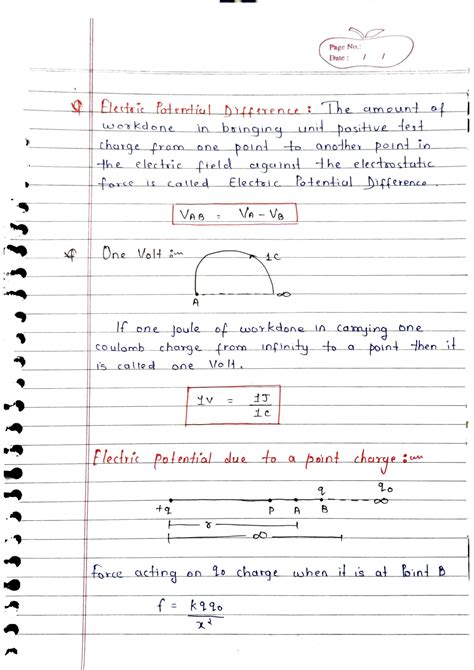 Page No.:
Date : / /
Electric Potential Difference : The amount of
workdone in bringing unit positive test
charge from one point to another point in
the electric field against the electrostatic
force is called Electric Potential Difference.
VAB = VA - VB
One Volt :-
1C
A ∞
If one Joule of workdone in carrying one
coulomb charge from infinity to a point then it
is called one Volt.
1V = 1J
1C
Electric potential due to a point charge :-
q q₀
+q P A B ∞
r
∞
force acting on q₀ charge when it is at Point B
f = kqq₀
x²